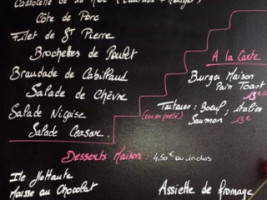 Côte de Porc
Filet de St Pierre
Brochettes de Poulet
Brandade de Cabillaud
Salade de Chèvre
Salade Niçoise
Salade Ceasar
A la Carte
Burger Maison
Pain Toast
Tartare: Boeuf, italien
Saumon 13€
Desserts Maison: 4,50€ au choix
Ile flottante
Mousse au Chocolat
Assiette de fromage